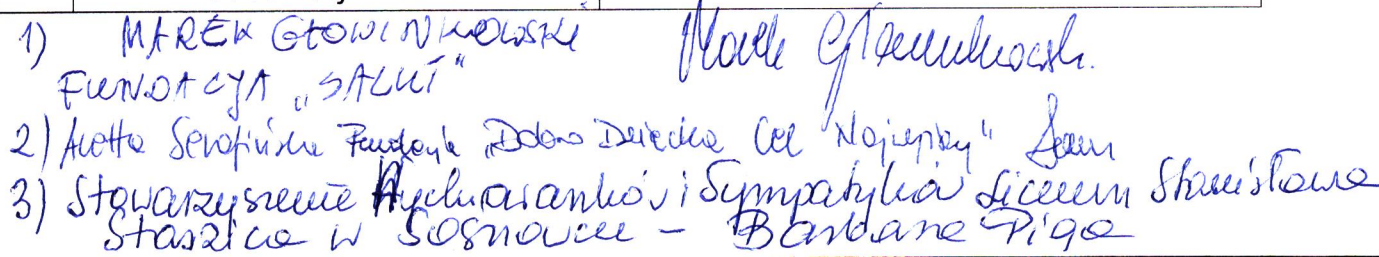 1) MAREK GŁOWINKOWSKI
FUNDACYJA „SALUT"
2) Aletta Serafińska Fundacja „Dobro Dziecka Cel Najlepszy"
3) Stowarzyszenie Wychowanków i Sympatyków Liceum Stanisława
Staszica w Sosnowcu - Barbara Piga